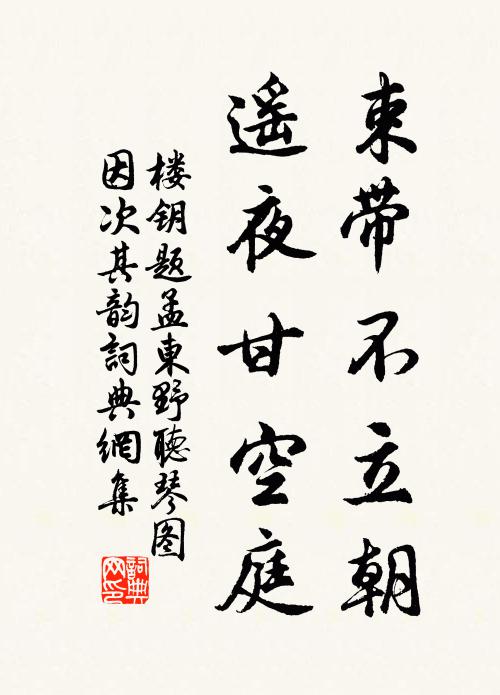 束带不立朝
遥夜甘空庭
楼钥题孟東野聽琴图
因次其韵詞典網集
詞典网印